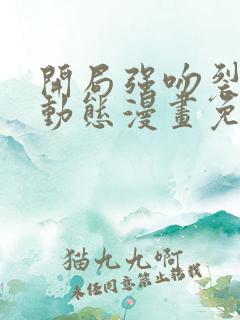 開局強吻裂
動態漫畫免
猫九九啊
未经同意禁止转载